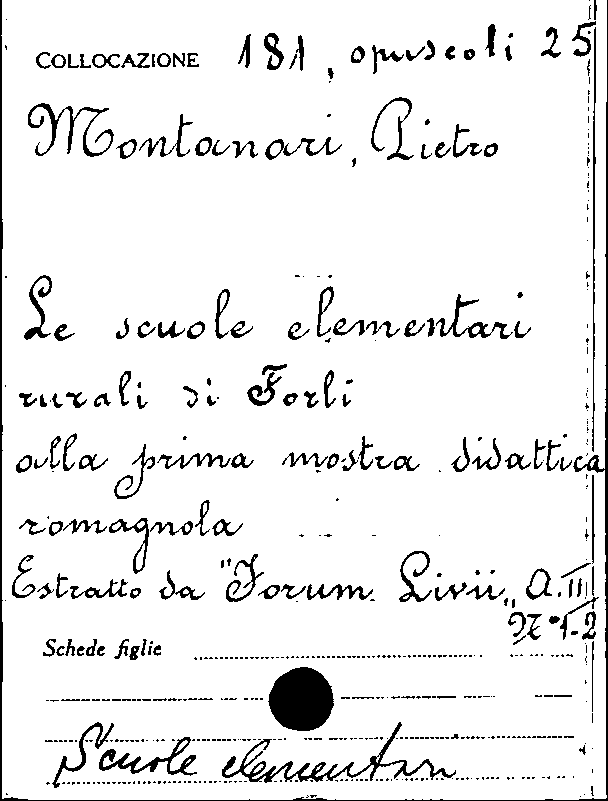 COLLOCAZIONE 181, opuscoli 25
Montanari, Pietro
Le scuole elementari
rurali di Forlì
alla prima mostra didattica
romagnola
Estratto da "Forum Livii„ A. II
N° 1-2
Schede figlie
Scuole elementari